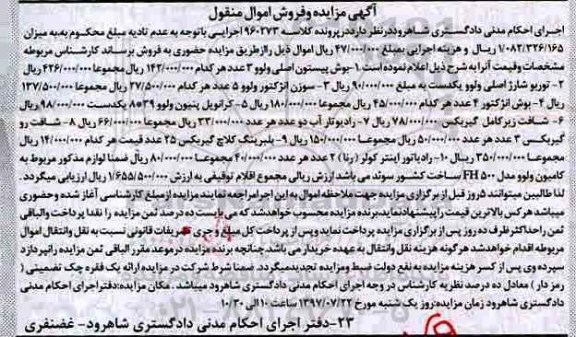 آگهی مزایده وفروش اموال منقول
اجرای احکام مدنی دادگستری شاهروددرنظرداردرپرونده کلاسه ۹۶۰۲۷۳ اجرایی باتوجه به عدم تادیه مبلغ محکوم به،به میزان
۱/۰۸۲/۳۲۶/۱۶۵ ریال و هزینه اجرایی بمبلغ ۴۷/۰۰۰/۰۰۰ ریال اموال ذیل راازطریق مزایده حضوری به فروش برساند کارشناس مربوطه
مشخصات وقیمت آنرا به شرح ذیل اعلام نموده است.۱-بوش پیستون اصلی ولوو ۳ عدد هر کدام ۱۴۲/۰۰۰/۰۰۰ ریال مجموعا ۴۲۶/۰۰۰/۰۰۰ ریال
۲- توربو شارژ اصلی ولوو یکدست به مبلغ ۹۰/۰۰۰/۰۰۰ ریال ۳- سوزن انژکتور ولوو ۵ عدد هر کدام ۲۷/۵۰۰/۰۰۰ ریال مجموعا ۱۳۷/۵۰۰/۰۰۰
ریال ۴- بوش انژکتور ۴ عدد هر کدام ۴۵/۰۰۰/۰۰۰ ریال مجموعا ۱۸۰/۰۰۰/۰۰۰ ریال ۵- کرانویل پنیون ولوو ۳۹*۸ یکدست ۹۸/۰۰۰/۰۰۰ ریال
۶- شافت زیرکامل گیربکس ۷۸/۰۰۰/۰۰۰ ریال ۷- رادیوتار آب دو عدد هر عدد ۳۳/۰۰۰/۰۰۰ ریال مجموعا ۶۶/۰۰۰/۰۰۰ ریال ۸- شافت رو
گیربکس ۳ عدد هر عدد ۵۰/۰۰۰/۰۰۰ ریال مجموعا ۱۵۰/۰۰۰/۰۰۰ ریال ۹- بلبرینگ کلاچ گیربکس ۲۵ عدد قیمت هر کدام ۱۴/۰۰۰/۰۰۰ ریال
مجموعا ۳۵۰/۰۰۰/۰۰۰ ریال ۱۰- رادیاتور اینتر کولر (رنا) ۲ عدد هر عدد ۴۰/۰۰۰/۰۰۰ مجموعا ۸۰/۰۰۰/۰۰۰ ریال ضمنا لوازم مذکور مربوط به
کامیون ولوو مدل FH 500 ساخت کشور سوئد می باشد ارزش ریالی مجموع اقلام توقیفی به ارزش ۱/۶۵۵/۵۰۰/۰۰۰ ریال ارزیابی میگردد.
لذا طالبین میتوانند ۵روز قبل از برگزاری مزایده جهت ملاحظه اموال به این اجرامراجعه نمایند مزایده ازمبلغ کارشناسی آغاز شده وحضوری
میباشد هرکس بالاترین قیمت راپیشنهادنماید برنده مزایده محسوب خواهدشد که می بایست ده درصد ثمن مزایده را نقدا پرداخت والباقی
ثمن راحداکثر ظرف ده روز پس از برگزاری مزایده پرداخت نماید وپس از پرداخت کل مبلغ و تشریفات قانونی نسبت به نقل وانتقال اموال
مربوطه اقدام خواهدشد هر گونه هزینه نقل وانتقال به عهده خریدار می باشد.چنانچه برنده مزایده در موعد مقرر الباقی ثمن مزایده رانپردازد
سپرده وی پس از کسر هزینه مزایده به نفع دولت ضبط ومزایده تجدیدمیگردد. ضمنا شرط شرکت در مزایده ارائه یک فقره چک تضمینی (
رمز دار ) معادل ده درصد نظریه کارشناس در وجه اجرای احکام مدنی دادگستری شاهرود میباشد . مکان مزایده:دفتراجرای احکام مدنی
دادگستری شاهرود زمان مزایده:روز یک شنبه مورخ ۱۳۹۷/۰۷/۲۲ ساعت ۱۰ الی ۱۰/۳۰
۲۳-دفتر اجرای احکام مدنی دادگستری شاهرود- غضنفری